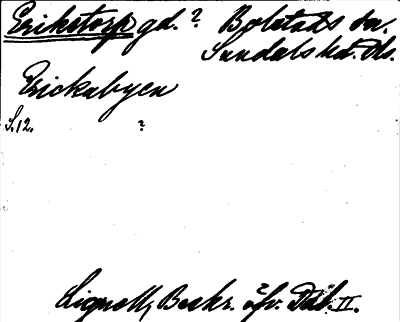 Erikstorp gd. ? Bolstads sn.
Sundals hd. Ds.
Erickabyen
S. 12. ?
Lignell, Beskr. öfv. Dal. II.